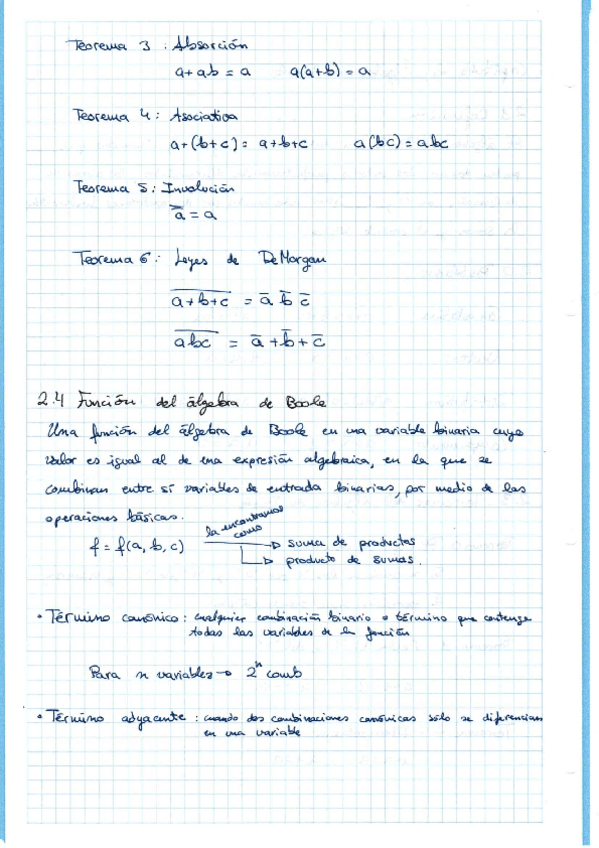 Teorema 3 : Absorción
a + ab = a a(a+b) = a
Teorema 4 : Asociativa
a + (b+c) = a+b+c a(bc) = abc
Teorema 5 : Involución
a̿ = a
Teorema 6 : Leyes de DeMorgan
\overline{a+b+c} = a̅ b̅ c̅
\overline{abc} = a̅ + b̅ + c̅
2.4 Función del álgebra de Boole
Una función del álgebra de Boole en una variable binaria cuyo
valor es igual al de una expresión algebraica, en la que se
combinan entre sí variables de entrada binarias, por medio de las
operaciones básicas.
f = f(a, b, c) la encontramos como → suma de productos
→ producto de sumas.
• Término canónico : cualquier combinación binario o término que contenga
todas las variables de la función
Para n variables → 2ⁿ comb
• Término adyacente : cuando dos combinaciones canónicas sólo se diferencian
en una variable